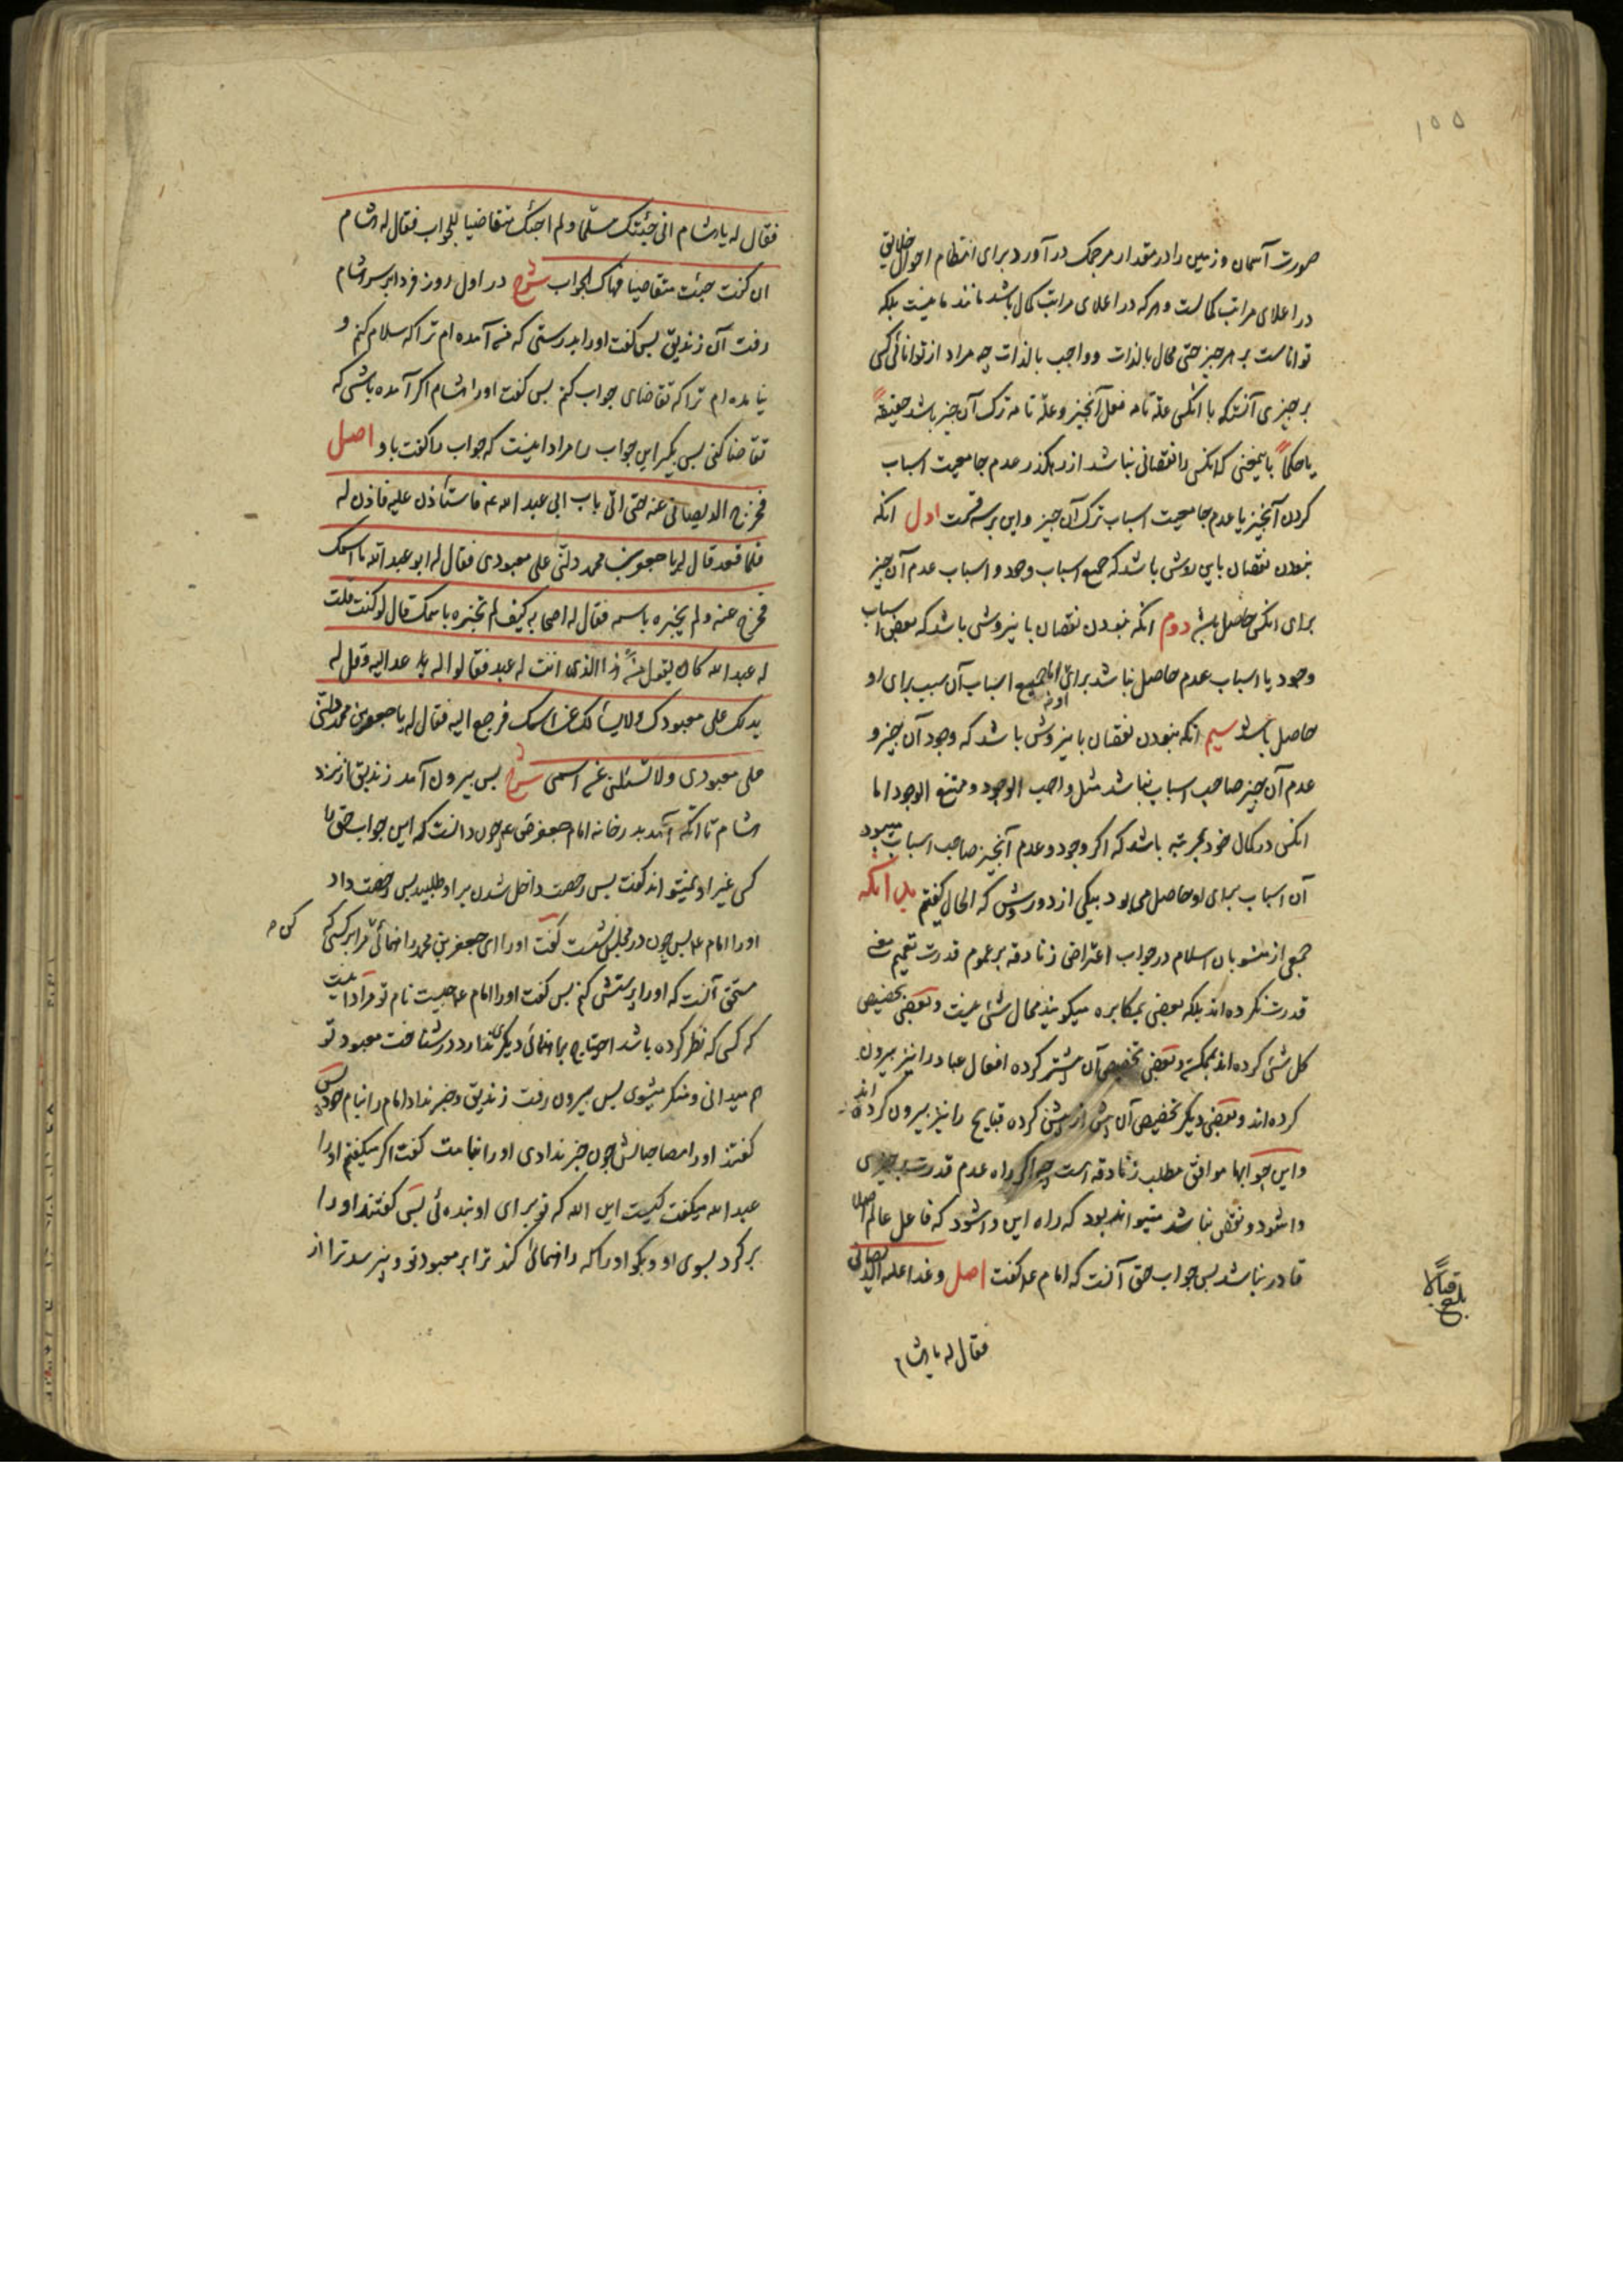 ۱۵۵
صورت آسمان و زمین را در مقدار مرجمک درآورد برای انتظام احوال خلایق
در اعلای مراتب کمالست و هر که در اعلای مراتب کمال باشد مانند ما نیست بلکه
تواناست بر هر چیز حتی محال بالذات و واجب بالذات چه مراد از توانائی کسی
بر چیزی آنستکه با انکس علّة تامه فعل آنچیز و علّة تامه ترک آن چیز باشد حقیقةً
یا حکماً باینمعنی که انکس را نقصانی نباشد از رهکذر عدم جامعیت اسباب
کردن آنچیز یا عدم جامعیت اسباب ترک آن چیز و این بر سه قسمت اول انکه
نبودن نقصان باین روش باشد که جمیع اسباب وجود و اسباب عدم آن چیز
برای انکس حاصل باشد دوم انکه نبودن نقصان باینروش باشد که بعض اسباب
وجود یا اسباب عدم حاصل نباشد برای او اما جمیع اسباب آن سبب برای او
حاصل باشد سیم انکه نبودن نقصان باینروش باشد که وجود آن چیز و
عدم آن چیز صاحب اسباب نباشد مثل واجب الوجود و ممتنع الوجود اما
انکس در کمال خود بمرتبه باشد که اکر وجود و عدم آنچیز صاحب اسباب میبود
آن اسباب برای او حاصل می بود بیکی از دو روش که الحال کفتم بدانکه
جمعی از منسوبان اسلام در جواب اعتراض زنادقه بر عموم قدرت تعمیم معنی
قدرت نکرده اند بلکه بعضی بمکابره میکویند محال شئ نیست و بعضی تخصیص
کل شئ کرده اند بممکن و بعضی تخصیص آن بیشتر کرده افعال عباد را نیز بیرون
کرده اند و بعضی دیکر تخصیص آن بیش از پیش کرده قبایح را نیز بیرون کرده اند
و این جوابها موافق مطلب زنادقه است چه اکر راه عدم قدرت بر چیزی
وا شود و نقص نباشد میتواند بود که راه این وا شود که فاعل عالم اصلا
قادر نباشد پس جواب حق آنست که امام ع کفت اصل و غدا علیه الدیصانی
بلغ قبالا
فقال له یا هشام
فقال له یا هشام انی جئتک مسلّما و لم اجئک متقاضیا للجواب فقال له هشام
ان کنت جئت متقاضیا فهاک الجواب شرح در اول روز فردا بر سر هشام
رفت آن زندیق پس کفت او را بدرستی که من آمده ام ترا که سلام کنم و
نیامده ام ترا که تقاضای جواب کنم پس کفت او را هشام اکر آمده باشی که
تقاضا کنی پس بکیر این جواب را مراد اینست که جواب را کفت باو اصل
فخرج الدیصانی عنه حتی اتی باب ابی عبد الله ع فاستأذن علیه فاذن له
فلما قعد قال له یا جعفر بن محمد دلّنی علی معبودی فقال له ابو عبد الله ما اسمک
فخرج عنه و لم یخبره باسمه فقال له اصحابه کیف لم تخبره باسمک قال لو کنت قلت
له عبد الله کان یقول من هذا الذی انت له عبد فقالوا له عد الیه و قل له
یدلک علی معبودک و لا یسألک عن اسمک فرجع الیه فقال له یا جعفر بن محمد دلّنی
علی معبودی و لا تسئلنی عن اسمی شرح پس بیرون آمد زندیق از نزد
هشام تا انکه آمد بدر خانه امام جعفر ص ع چون دانست که این جواب حق را
کسی غیر او نمیتواند کفت پس رخصت داخل شدن بر او طلبید پس رخصت داد
او را امام ع پس چون در مجلس نشست کفت او را ای جعفر بن محمد راهنمائی کن مرا بر کسی که
مستحق آنست که او را پرستش کنم پس کفت او را امام ع چیست نام تو مراد اینست
که کسی که نظر کرده باشد احتیاج براهنمائی دیکری ندارد در شناخت معبود تو
هم میدانی و منکر میشوی پس بیرون رفت زندیق و خبر نداد امام را بنام خود پس
کفتند او را مصاحبانش چون خبر ندادی او را بنامت کفت اکر میکفتم او را
عبد الله میکفت کیست این الله که تو برای او بنده ئی پس کفتند او را
برکرد بسوی او و بکو او را که راهنمائی کند ترا بر معبود تو و نپرسد ترا از